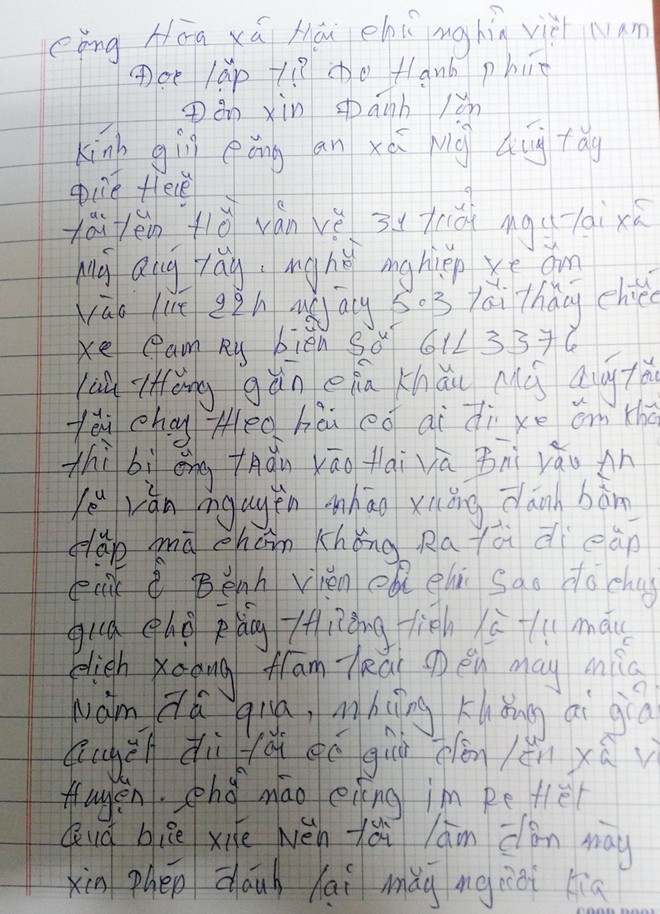 Cộng Hòa xã Hội chủ nghĩa việt Nam
Đọc lập tự Do Hạnh phúc
Đơn xin Đánh lộn
Kính gửi công an xã Mỹ Quý tây
Đức Huệ
tôi tên Hồ văn vẽ 31 tuổi ngụ tại xã
Mỹ Quý tây. nghề nghiệp xe ôm
vào lúc 22h ngày 5.3 tôi thấy chiếc
xe Cam Ry biển số 61L 3376
lưu thông gần cửa khẩu Mỹ Quý tây
tôi chạy theo hỏi có ai đi xe ôm khôn
thì bị ông trần vào Hai và Bùi văn An
lê văn nguyên nhào xuống đánh bầm
dập mà chôm không Ra tôi đi cấp
cứu ở Bệnh viện sao đó chuy
qua chợ Rẫy thương tích là tụ máu
dịch xoang Hàm trái Đến nay nửa
Năm đã qua, nhưng không ai giải
Quyết dù tôi có gửi đơn lên xã và
Huyện. chổ nào cũng im Re Hết
Quá bức xúc Nên tôi làm đơn này
xin phép đánh lại mấy người kia